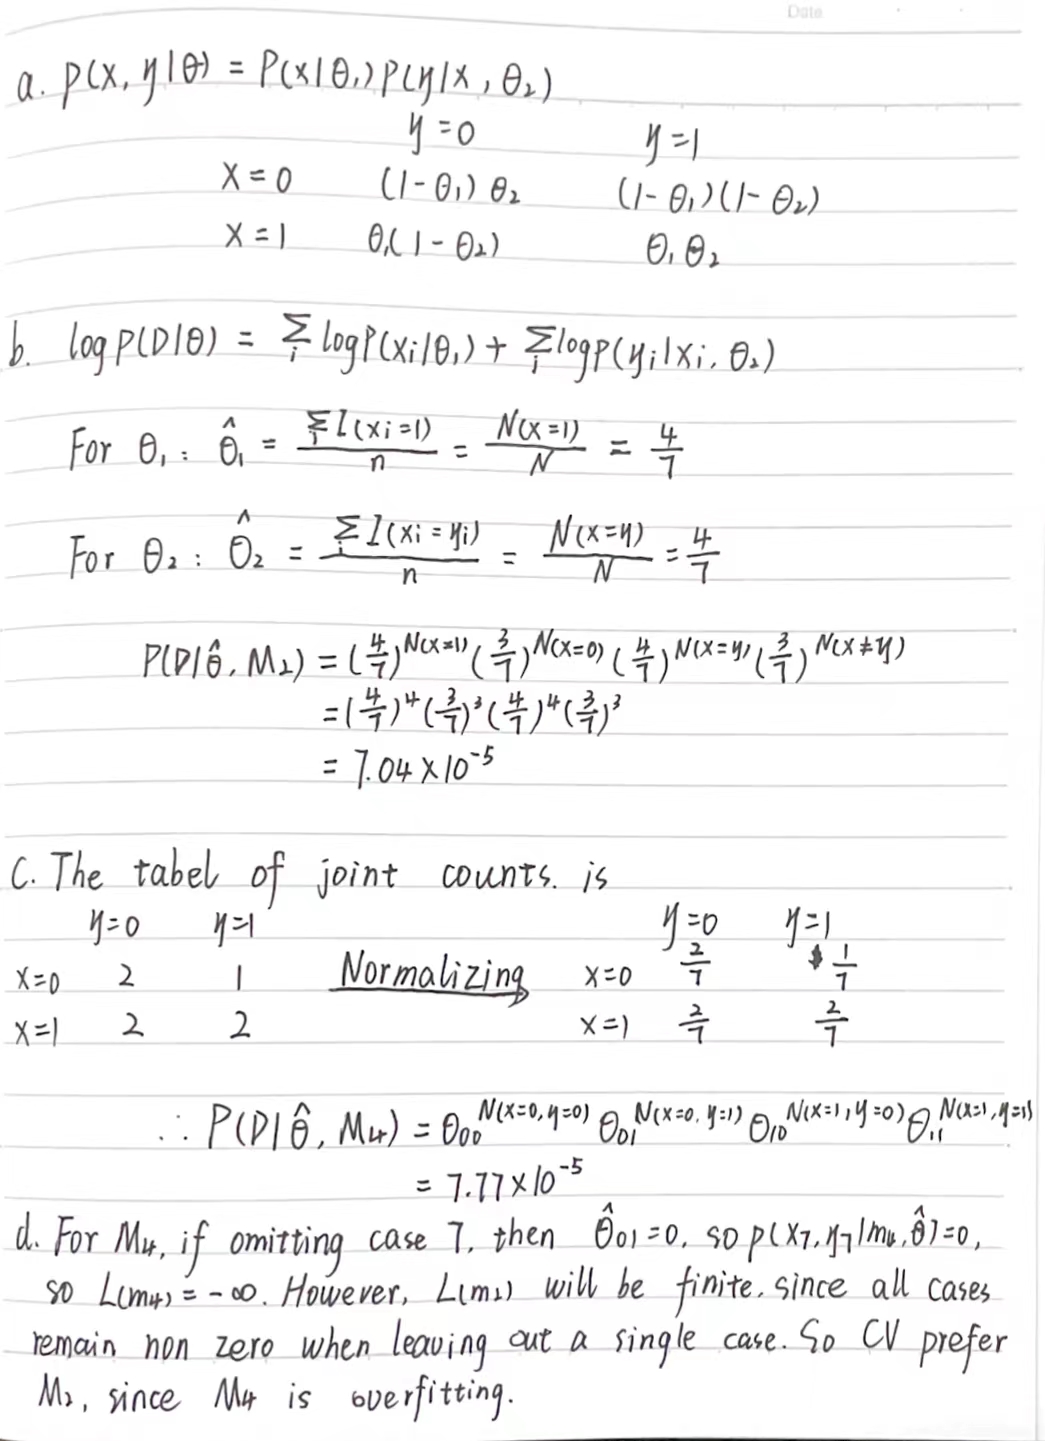 Date
a. P(x, y|θ) = P(x|θ₁)P(y|x, θ₂)
y=0 y=1
x=0 (1-θ₁)θ₂ (1-θ₁)(1-θ₂)
x=1 θ₁(1-θ₂) θ₁θ₂
b. log P(D|θ) = Σᵢ log P(xᵢ|θ₁) + Σᵢ log P(yᵢ|xᵢ, θ₂)
For θ₁: θ̂₁ = Σᵢ I(xᵢ=1)/n = N(x=1)/N = 4/7
For θ₂: θ̂₂ = Σᵢ I(xᵢ=yᵢ)/n = N(x=y)/N = 4/7
P(D|θ̂, M₂) = (4/7)^N(x=1) (3/7)^N(x=0) (4/7)^N(x=y) (3/7)^N(x≠y)
= (4/7)⁴(3/7)³(4/7)⁴(3/7)³
= 7.04×10⁻⁵
C. The tabel of joint counts. is
y=0 y=1 y=0 y=1
x=0 2 1 Normalizing x=0 2/7 1/7
x=1 2 2 x=1 2/7 2/7
∴ P(D|θ̂, M₄) = θ₀₀^N(x=0,y=0) θ₀₁^N(x=0,y=1) θ₁₀^N(x=1,y=0) θ₁₁^N(x=1,y=1)
= 7.77×10⁻⁵
d. For M₄, if omitting case 7, then θ̂₀₁=0, so p(x₇,y₇|m₄,θ̂)=0,
so L(m₄) = -∞. However, L(m₂) will be finite, since all cases
remain non zero when leaving out a single case. So CV prefer
M₂, since M₄ is overfitting.